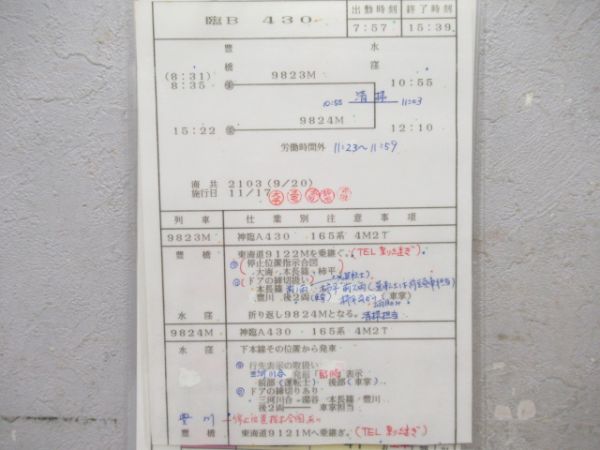 臨B 430 出勤時刻 終了時刻
7:57 15:39
豊橋 水窪
(8:31)
8:35 9823M 10:55
10:55 清掃 11:03
9824M
15:22 12:10
労働時間外 11:23〜11:59
海共 2103(9/20)
施行日 11/17
列車 仕業別注意事項
9823M 神臨A430 165系 4M2T
豊橋 東海道9122Mを乗継ぐ。(TEL
停止位置指示合図
大海・本長篠・柿平
(ドアの締切扱い)
本長篠
豊川 後2両 (車掌)
水窪 折り返し9824Mとなる。清掃担当
9824M 神臨A430 165系 4M2T
水窪 下本線その位置から発車
行先表示の取扱い
三河川合 発泡 表示
前部(運転士) 後部(車掌)
ドアの締切りあり
三河川合・湯谷 本長篠・豊川
後2両 車掌担当
豊川
豊橋 東海道9121Mへ乗継ぎ。(TEL